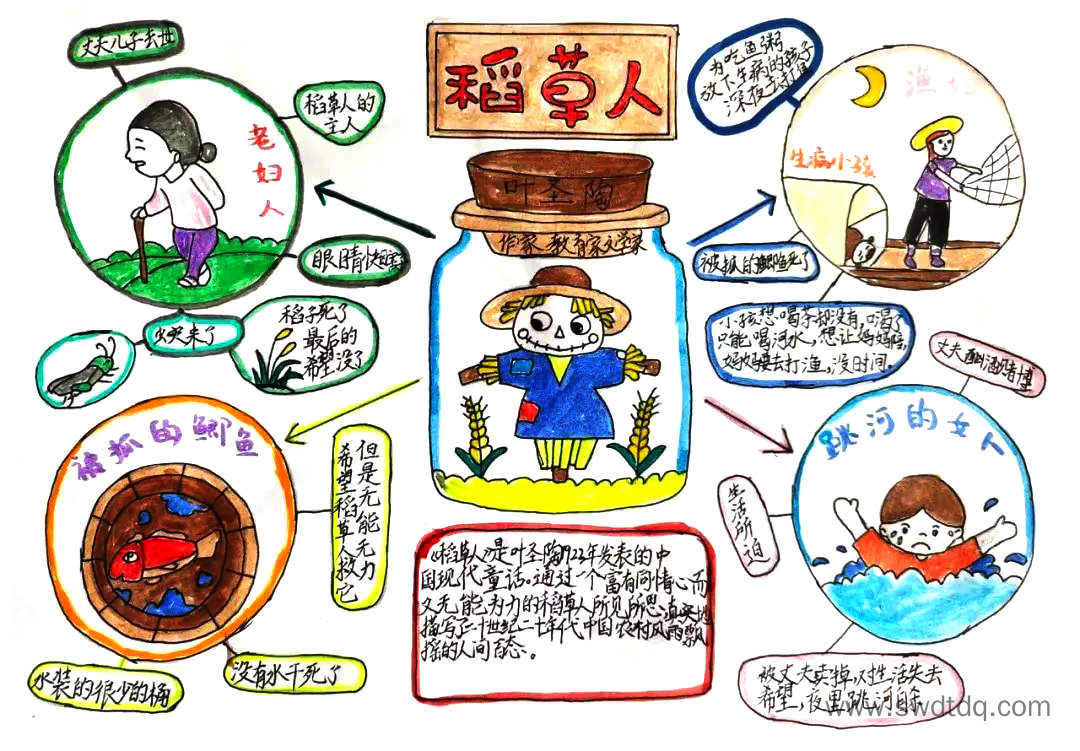 稻草人
叶圣陶
作家 教育家文学家
丈夫儿子去世
稻草人的
主人
老妇人
眼睛快瞎
火灾来了
稻子死了
最后的
希望没了
为吃鱼粥
放下生病的孩子
深夜去打鱼
渔妇
生病小孩
被抓的鲫鱼死了
小孩想喝茶却没有,口渴了
只能喝河水,想让妈妈陪,
妈妈要去打渔。没时间。
被抓的鲫鱼
但是无能无力
希望稻草人救它
水装的很少的桶
没有水干死了
丈夫酗酒赌博
跳河的女人
生活所迫
被丈夫卖掉,对生活失去
希望,夜里跳河自
《稻草人》是叶圣陶1922年发表的中
国现代童话。通过一个富有同情心而
又无能为力的稻草人所见所思真实地
描写了二十世纪二十年代中国农村风雨飘
摇的人间百态。
www.swdtdq.com